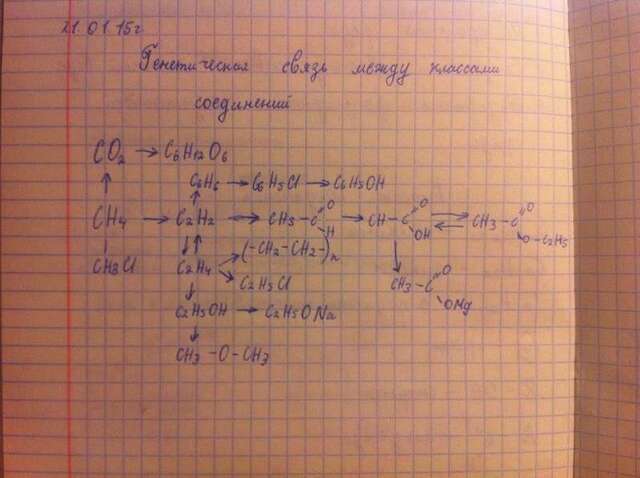 21.01.15г
Генетическая связь между классами
соединений
CO2 → C6H12O6
C6H6 → C6H5Cl → C6H5OH
CH4 → C2H2 ↔ CH3 - C =O H → CH - C =O OH ⇄ CH3 - C =O O - C2H5
(-CH2-CH2-)n
CH3Cl C2H4 CH3 - C =O OMg
C2H5Cl
C2H5OH → C2H5ONa
CH3 - O - CH3